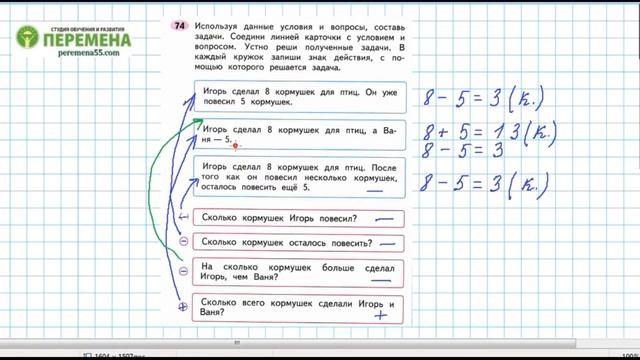 СТУДИЯ ОБУЧЕНИЯ И РАЗВИТИЯ
ПЕРЕМЕНА
peremena55.com
74 Используя данные условия и вопросы, составь
задачи. Соедини линией карточки с условием и
вопросом. Устно реши полученные задачи. В
каждый кружок запиши знак действия, с по-
мощью которого решается задача.
Игорь сделал 8 кормушек для птиц. Он уже
повесил 5 кормушек.
8 – 5 = 3 (к.)
Игорь сделал 8 кормушек для птиц, а Ва-
ня — 5.
8 + 5 = 13 (к.)
8 – 5 = 3
Игорь сделал 8 кормушек для птиц. После
того как он повесил несколько кормушек,
осталось повесить ещё 5. —
8 – 5 = 3 (к.)
Сколько кормушек Игорь повесил? —
– Сколько кормушек осталось повесить? —
– На сколько кормушек больше сделал
Игорь, чем Ваня? —
+ Сколько всего кормушек сделали Игорь и
Ваня? +
100%